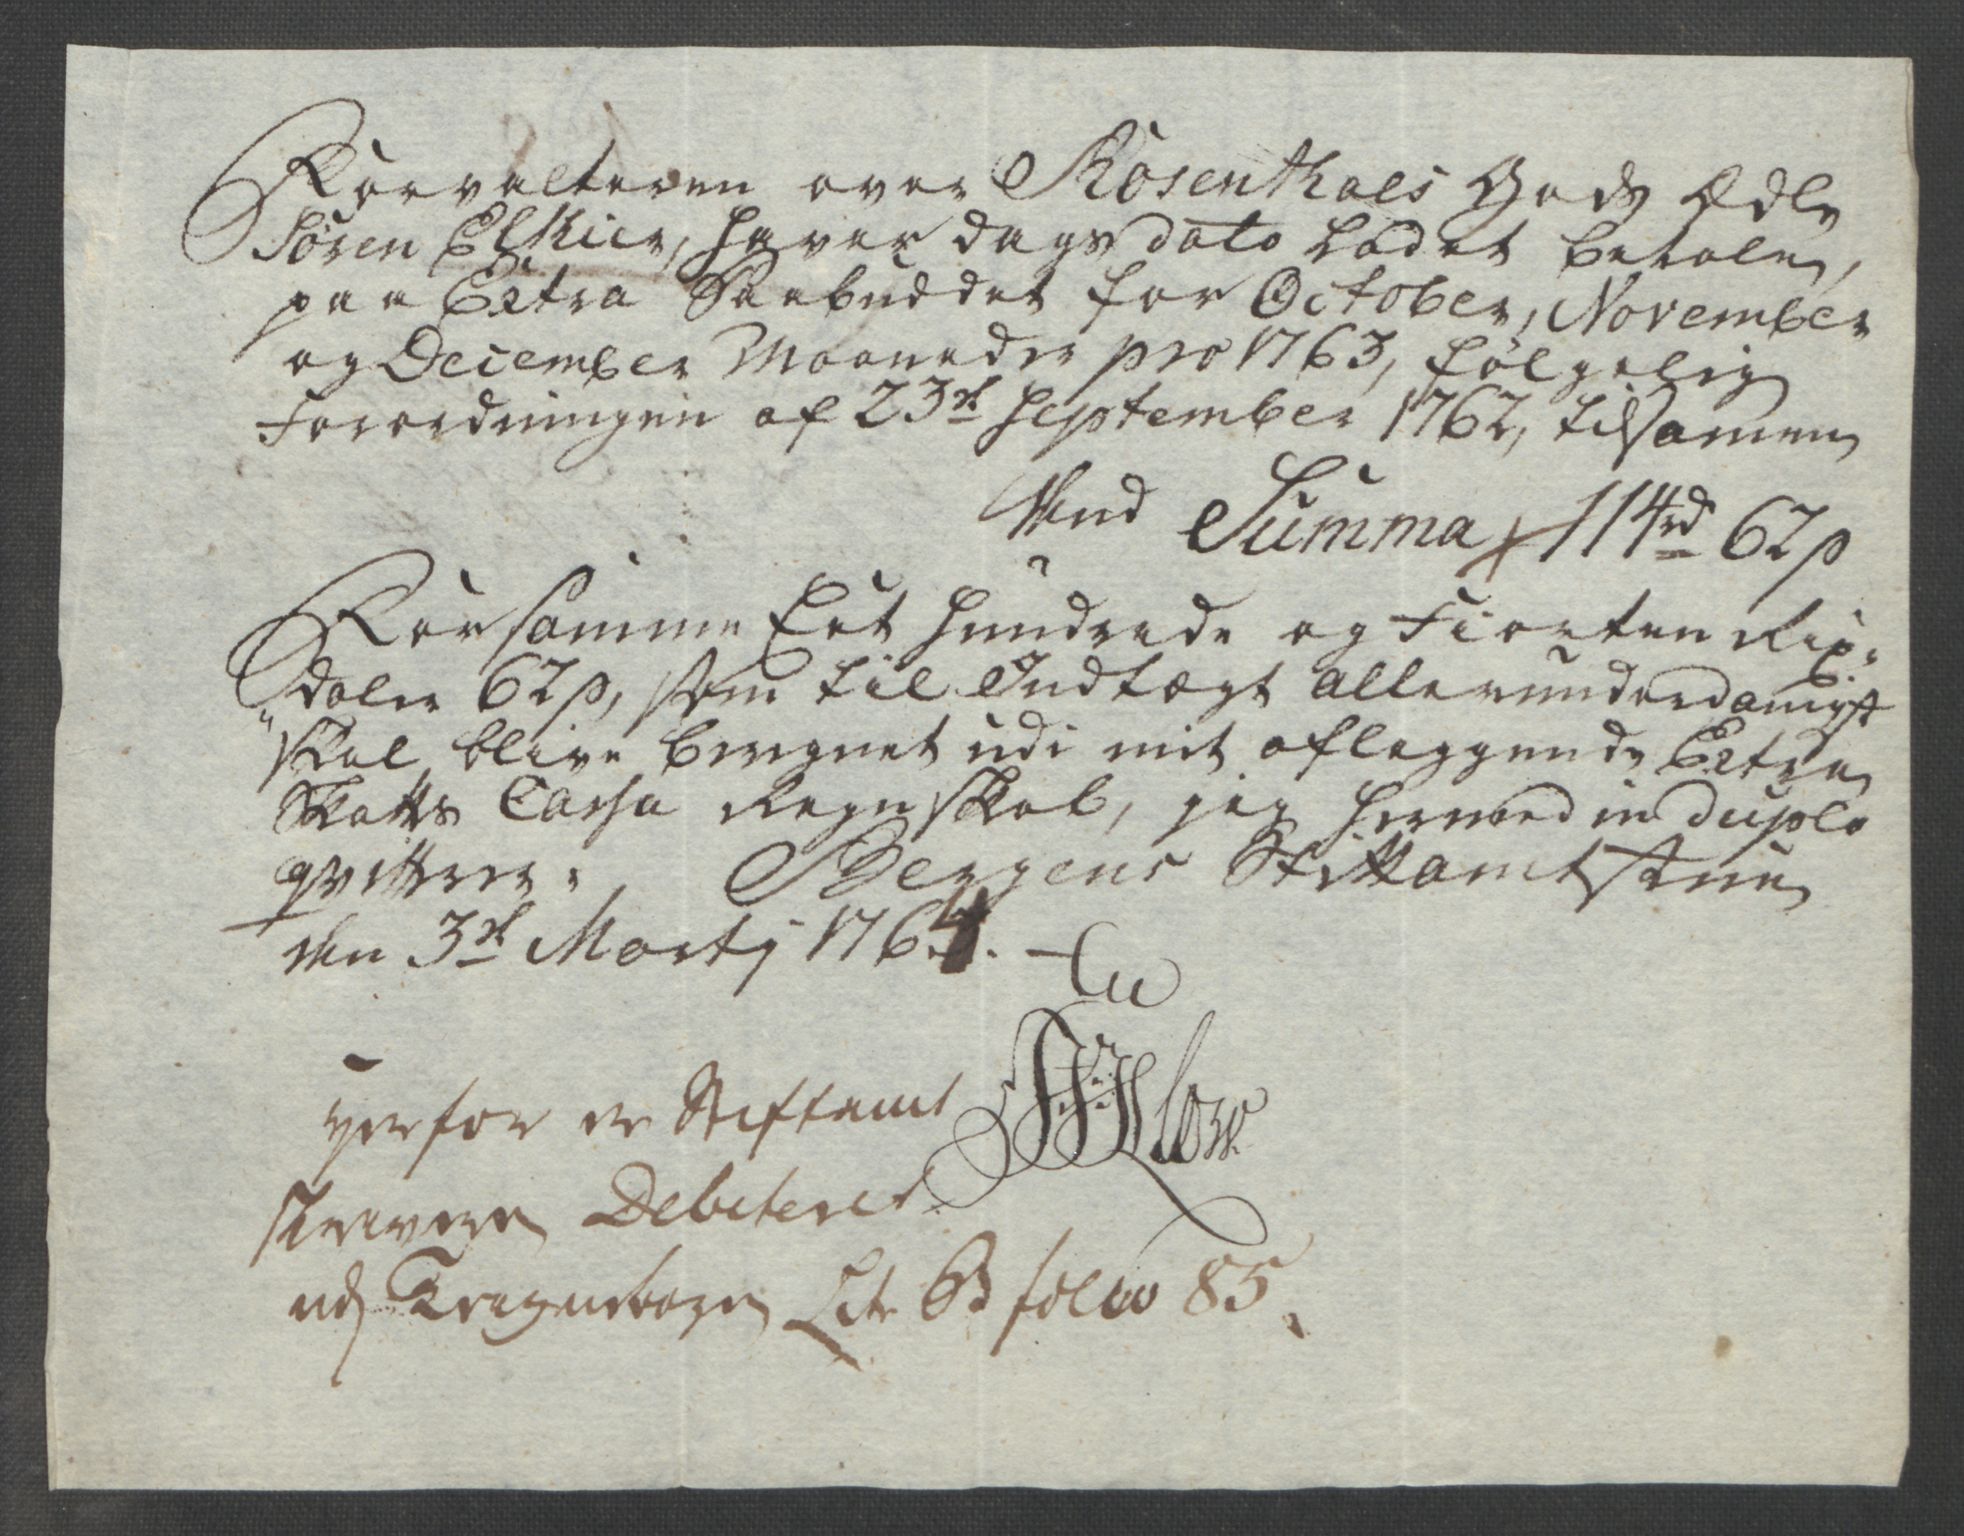 Forvalteren over Rosenthals Gods Ædle
Søren Elkier, haver dags dato ladet betale,
paa Extra Paabuddet for October, November
og December Maaneder pro 1763, følgelig
Forordningen af 23de September 1762, tilsamen
Summa 114rd 62s
For samme Eet Hundrede og Fiorten Rix-
daler 62s, som til Indtægt allerunderdanigst
skal blive beregnet udi mit aflæggende Extra
Skatts Cassa Regnskab, jeg hermed in duplo
qvitterer. Bergens Stiftamtstue
den 3de Martj 1764.
herfor er Stiftamt
skriveren Debiteret
udj Tegnebogen Litr B folio 85